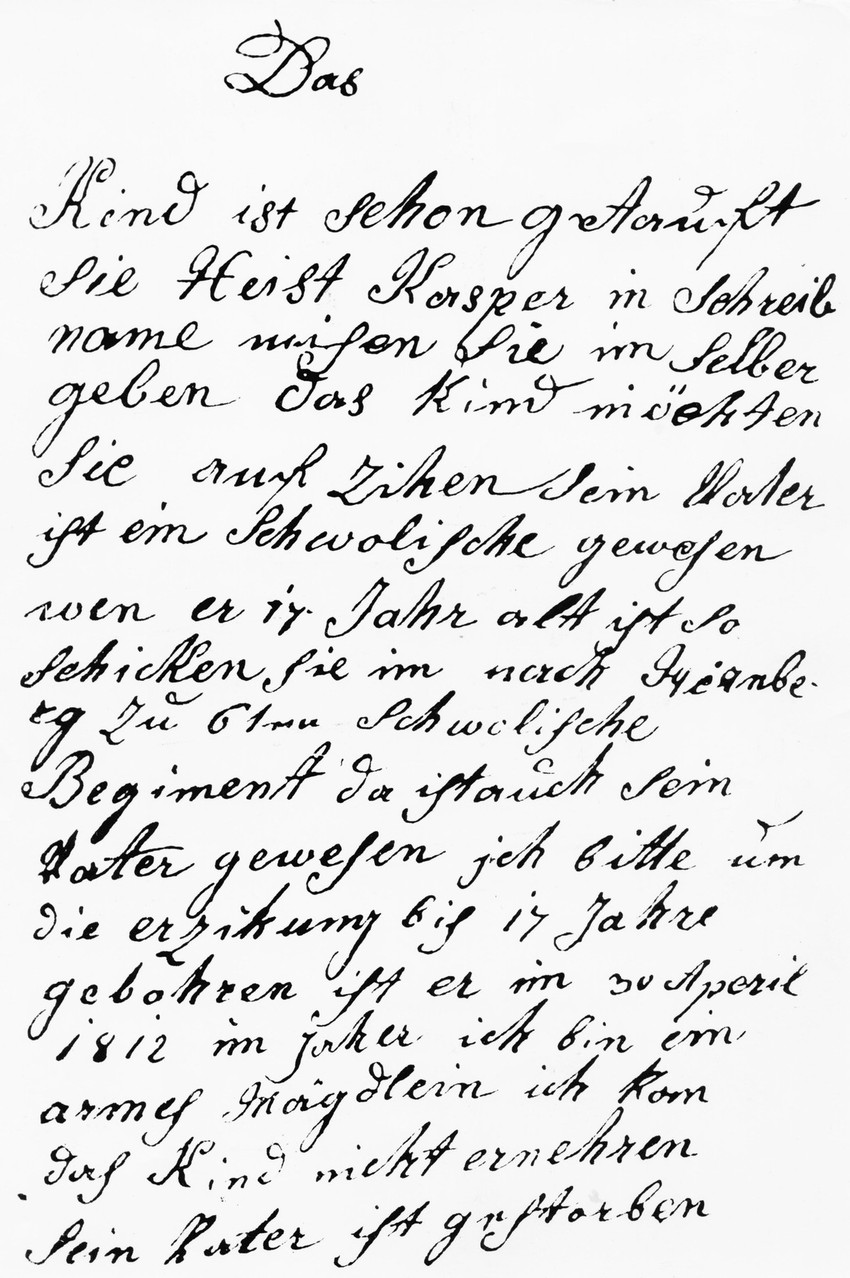 Das
Kind ist schon getauft
Sie Heist Kasper in Schreib
name misen Sie im selber
geben das Kind möchten
Sie auf Zihen Sein Vater
ist ein Schwolische gewesen
wen er 17 Jahr alt ist so
schicken sie im nach Nyernbe-
rg Zu 6ten Schwolische
Begiment da ist auch sein
Vater gewesen ich bitte um
die erzikung bis 17 Jahre
gebohren ist er im 30 Aperil
1812 im jaher ich bin ein
armes Mägdlein ich kan
das Kind nicht ernehren
Sein Vater ist gestorben